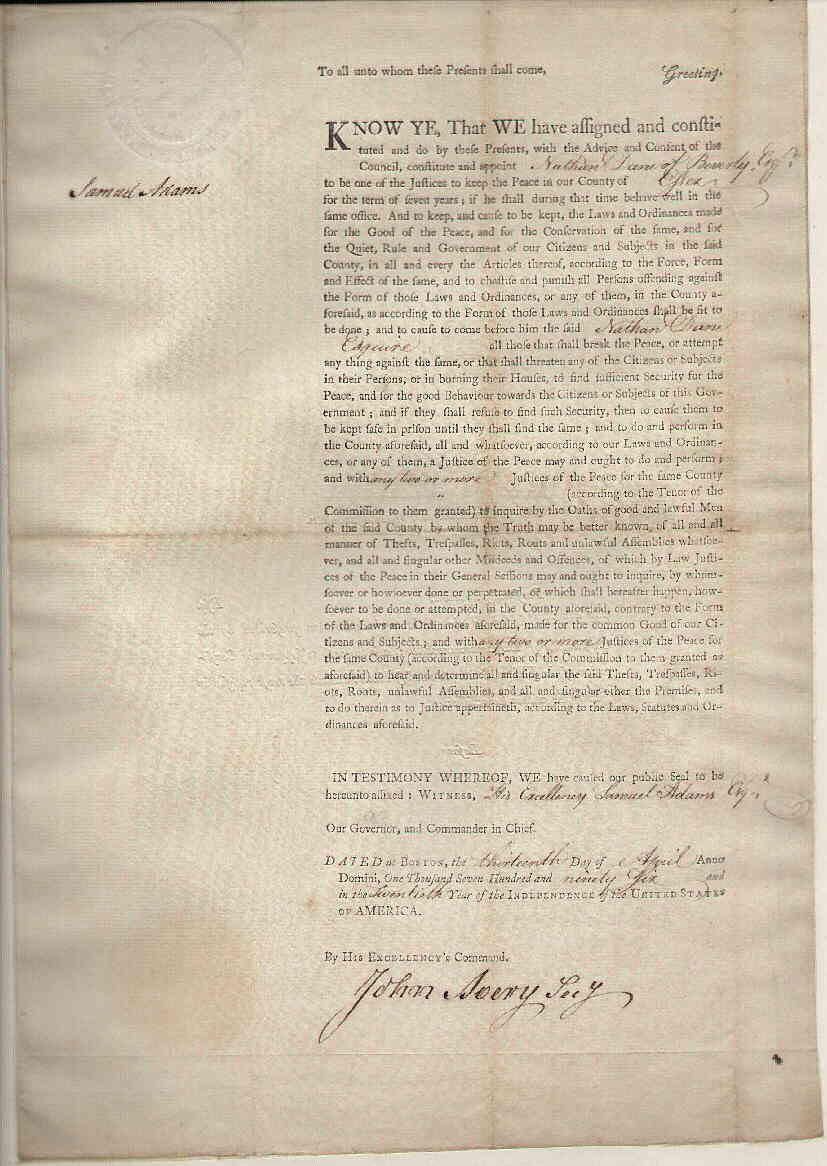 To all unto whom theſe Preſents ſhall come, Greeting.
KNOW YE, That WE have aſſigned and conſti-
tuted and do by theſe Preſents, with the Advice and Conſent of the
Samuel Adams
Council, conſtitute and appoint Nathan Dane of Beverly, Esqr.
to be one of the Juſtices to keep the Peace in our County of Essex
for the term of ſeven years; if he ſhall during that time behave well in the
ſame office. And to keep, and cauſe to be kept, the Laws and Ordinances made
for the Good of the Peace, and for the Conſervation of the ſame, and for
the Quiet, Rule and Government of our Citizens and Subjects in the ſaid
County, in all and every the Articles thereof, according to the Force, Form
and Effect of the ſame, and to chaſtiſe and puniſh all Perſons offending againſt
the Form of thoſe Laws and Ordinances, or any of them, in the County a-
foreſaid, as according to the Form of thoſe Laws and Ordinances ſhall be fit to
be done; and to cauſe to come before him the ſaid Nathan Dane
Esquire all thoſe that ſhall break the Peace, or attempt
any thing againſt the ſame, or that ſhall threaten any of the Citizens or Subjects
in their Perſons, or in burning their Houſes, to find ſufficient Security for the
Peace, and for the good Behaviour towards the Citizens or Subjects of this Gov-
ernment; and if they ſhall refuſe to find ſuch Security, then to cauſe them to
be kept ſafe in priſon until they ſhall find the ſame; and to do and perform in
the County aforeſaid, all and whatſoever, according to our Laws and Ordinan-
ces, or any of them, a Juſtice of the Peace may and ought to do and perform;
and with any two or more Juſtices of the Peace for the ſame County
(according to the Tenor of the
Commiſſion to them granted) to inquire by the Oaths of good and lawful Men
of the ſaid County by whom the Truth may be better known, of all and all
manner of Thefts, Treſpaſſes, Riots, Routs and unlawful Aſſemblies whatſoe-
ver, and all and ſingular other Miſdeeds and Offences, of which by Law Juſti-
ces of the Peace in their General Seſſions may and ought to inquire, by whom-
ſoever or howſoever done or perpetrated, or which ſhall hereafter happen, how-
ſoever to be done or attempted, in the County aforeſaid, contrary to the Form
of the Laws and Ordinances aforeſaid, made for the common Good of our Ci-
tizens and Subjects; and with any two or more Juſtices of the Peace for
the ſame County (according to the Tenor of the Commiſſion to them granted as
aforeſaid) to hear and determine all and ſingular the ſaid Thefts, Treſpaſſes, Ri-
ots, Routs, unlawful Aſſemblies, and all and ſingular other the Premiſes, and
to do therein as to Juſtice appertaineth, according to the Laws, Statutes and Or-
dinances aforeſaid.
IN TESTIMONY WHEREOF, WE have cauſed our public Seal to be
hereunto affixed: WITNESS, His Excellency Samuel Adams Esqr.
Our Governor, and Commander in Chief.
DATED at BOSTON, the thirteenth Day of April Anno
Domini, One Thouſand Seven Hundred and ninety Six and
in the twentieth Year of the INDEPENDENCE of the UNITED STATES
OF AMERICA.
By HIS EXCELLENCY's Command.
John Avery Secy